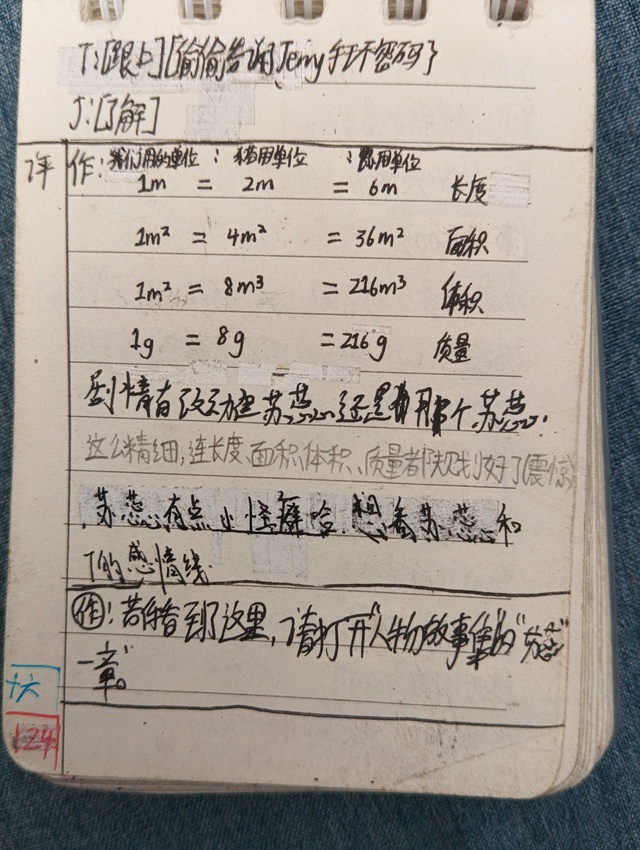 T:[跟上][偷偷告诉Jerry手环密码了
J:[了解]
评 作:我们用的单位 : 猪用单位 : 鼠用单位
1m = 2m = 6m 长度
1m² = 4m² = 36m² 面积
1m² = 8m³ = 216m³ 体积
1g = 8g = 216g 质量
剧情有改动 苏蕊 还是 那个苏蕊.
这么精细,连长度、面积、体积、质量都规划好了(震惊)
苏蕊有点小怪癖哈.想看苏蕊和
T的感情线.
作! 若你看到了这里,请打开"人物故事集"的"苏蕊"
一章。
十六
124